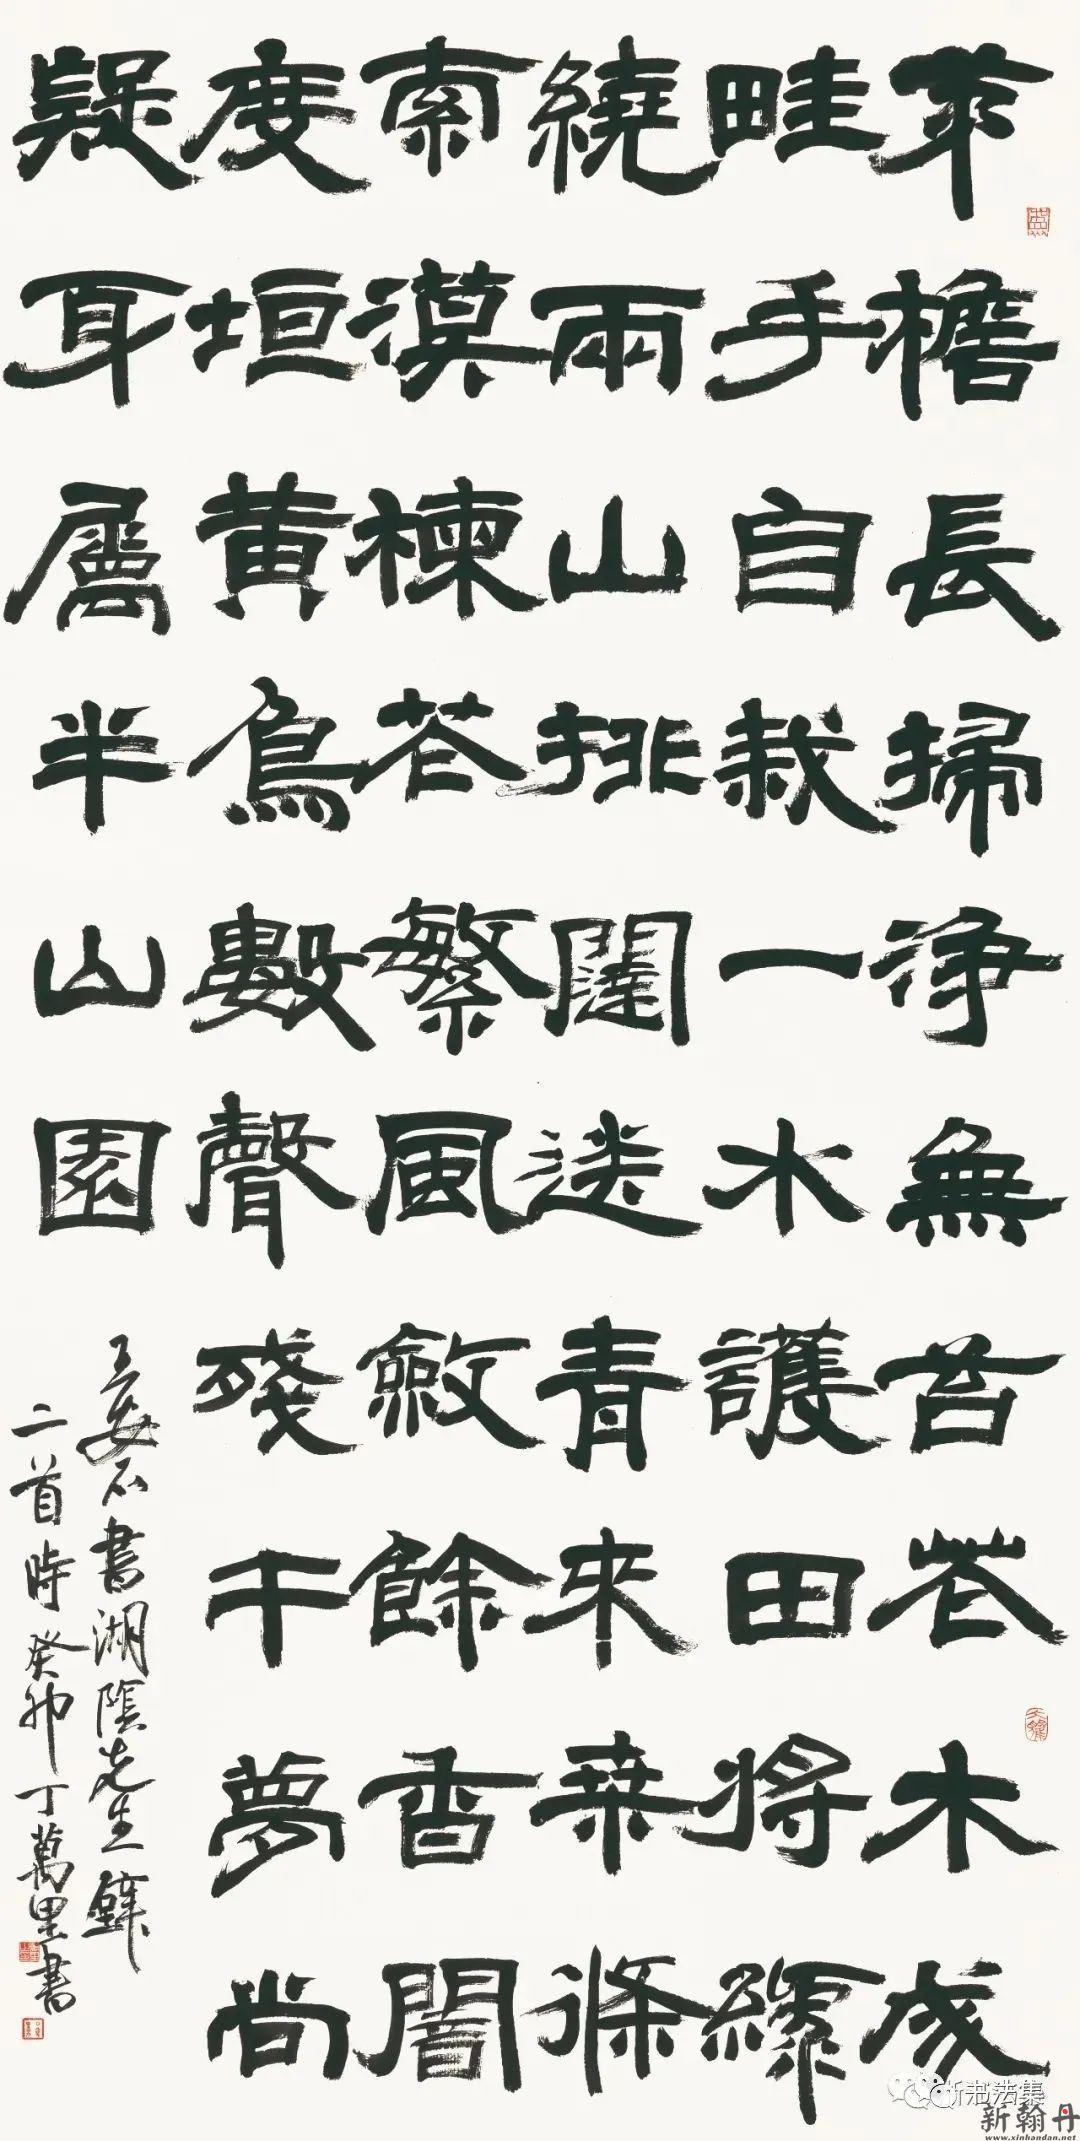 茅檐長掃淨無苔花木成
畦手自栽一水護田將綠
繞兩山排闥送青來桑條
索漠楝花繁風斂餘香闇
度垣黄鳥數聲殘午夢尚
疑身屬半山園
王安石書湖陰先生壁
二首時癸卯丁萬里書
书法集
新翰丹
www.xinhandan.net